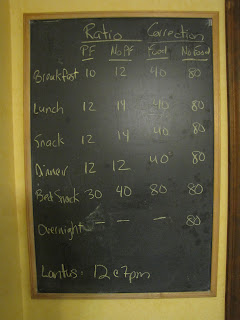 Ratio Correction
PF No PF Food No Food
Breakfast 10 12 40 80
Lunch 12 14 40 80
Snack 12 14 40 80
Dinner 12 12 40 80
Bed Snack 30 40 80 80
Overnight — — — 80
Lantus: 12 @ 7pm